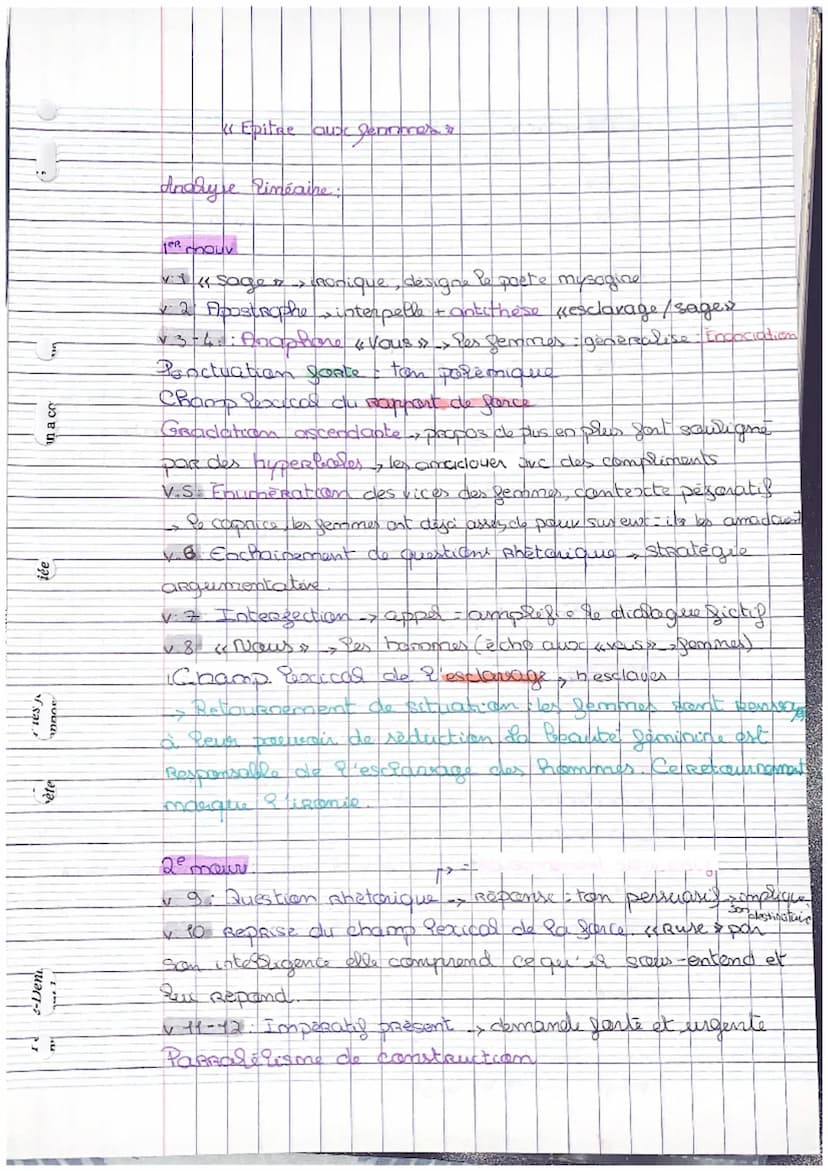 « Epitre aux femmes »
Analyse linéaire :
1er mouv
v.1 « sage » → ironique, designe le poete mysogine
v.2 Apostrophe → interpelle + antithèse « esclavage / sage »
v 3-4 : Anaphore « Vous » → les femmes : généralise : Enonciation
Ponctuation forte : ton polémique
Champ lexical du rapport de force
Gradation ascendante → propos de plus en plus fort souligné
par des hyperboles → les amadouer avc des compliments
v.5 : Enumération des vices des femmes, contexte péjoratif
→ le caprice, les femmes ont déjà assez de pouv sur eux = ils les amadouent
v.6 Enchainement de questions Rhétorique → stratégie
argumentative.
v. 7 Interjection → appel = amplifie le dialogue fictif
v 8 « Nous » → les hommes (écho aux « vous » → femmes)
Champ lexical de l'esclavage →
→ Retournement de situation, les femmes sont
à leur pouvoir de séduction, la beauté féminine est
Responsable de l'esclavage des hommes. Ce retournement
marque l'ironie.
2e mouv.
v 9 : Question Rhétorique → Réponse : ton persuasif → implique
son destinataire
v 10 Reprise du champ lexical de la force. « Ruse » par
son intelligence elle comprend ce qu'il sous-entend et
lui répond.
v 11-12 : Imperatif présent → demande forte et urgente
Parralélisme de construction
in a co
iée
ète
s-Deni